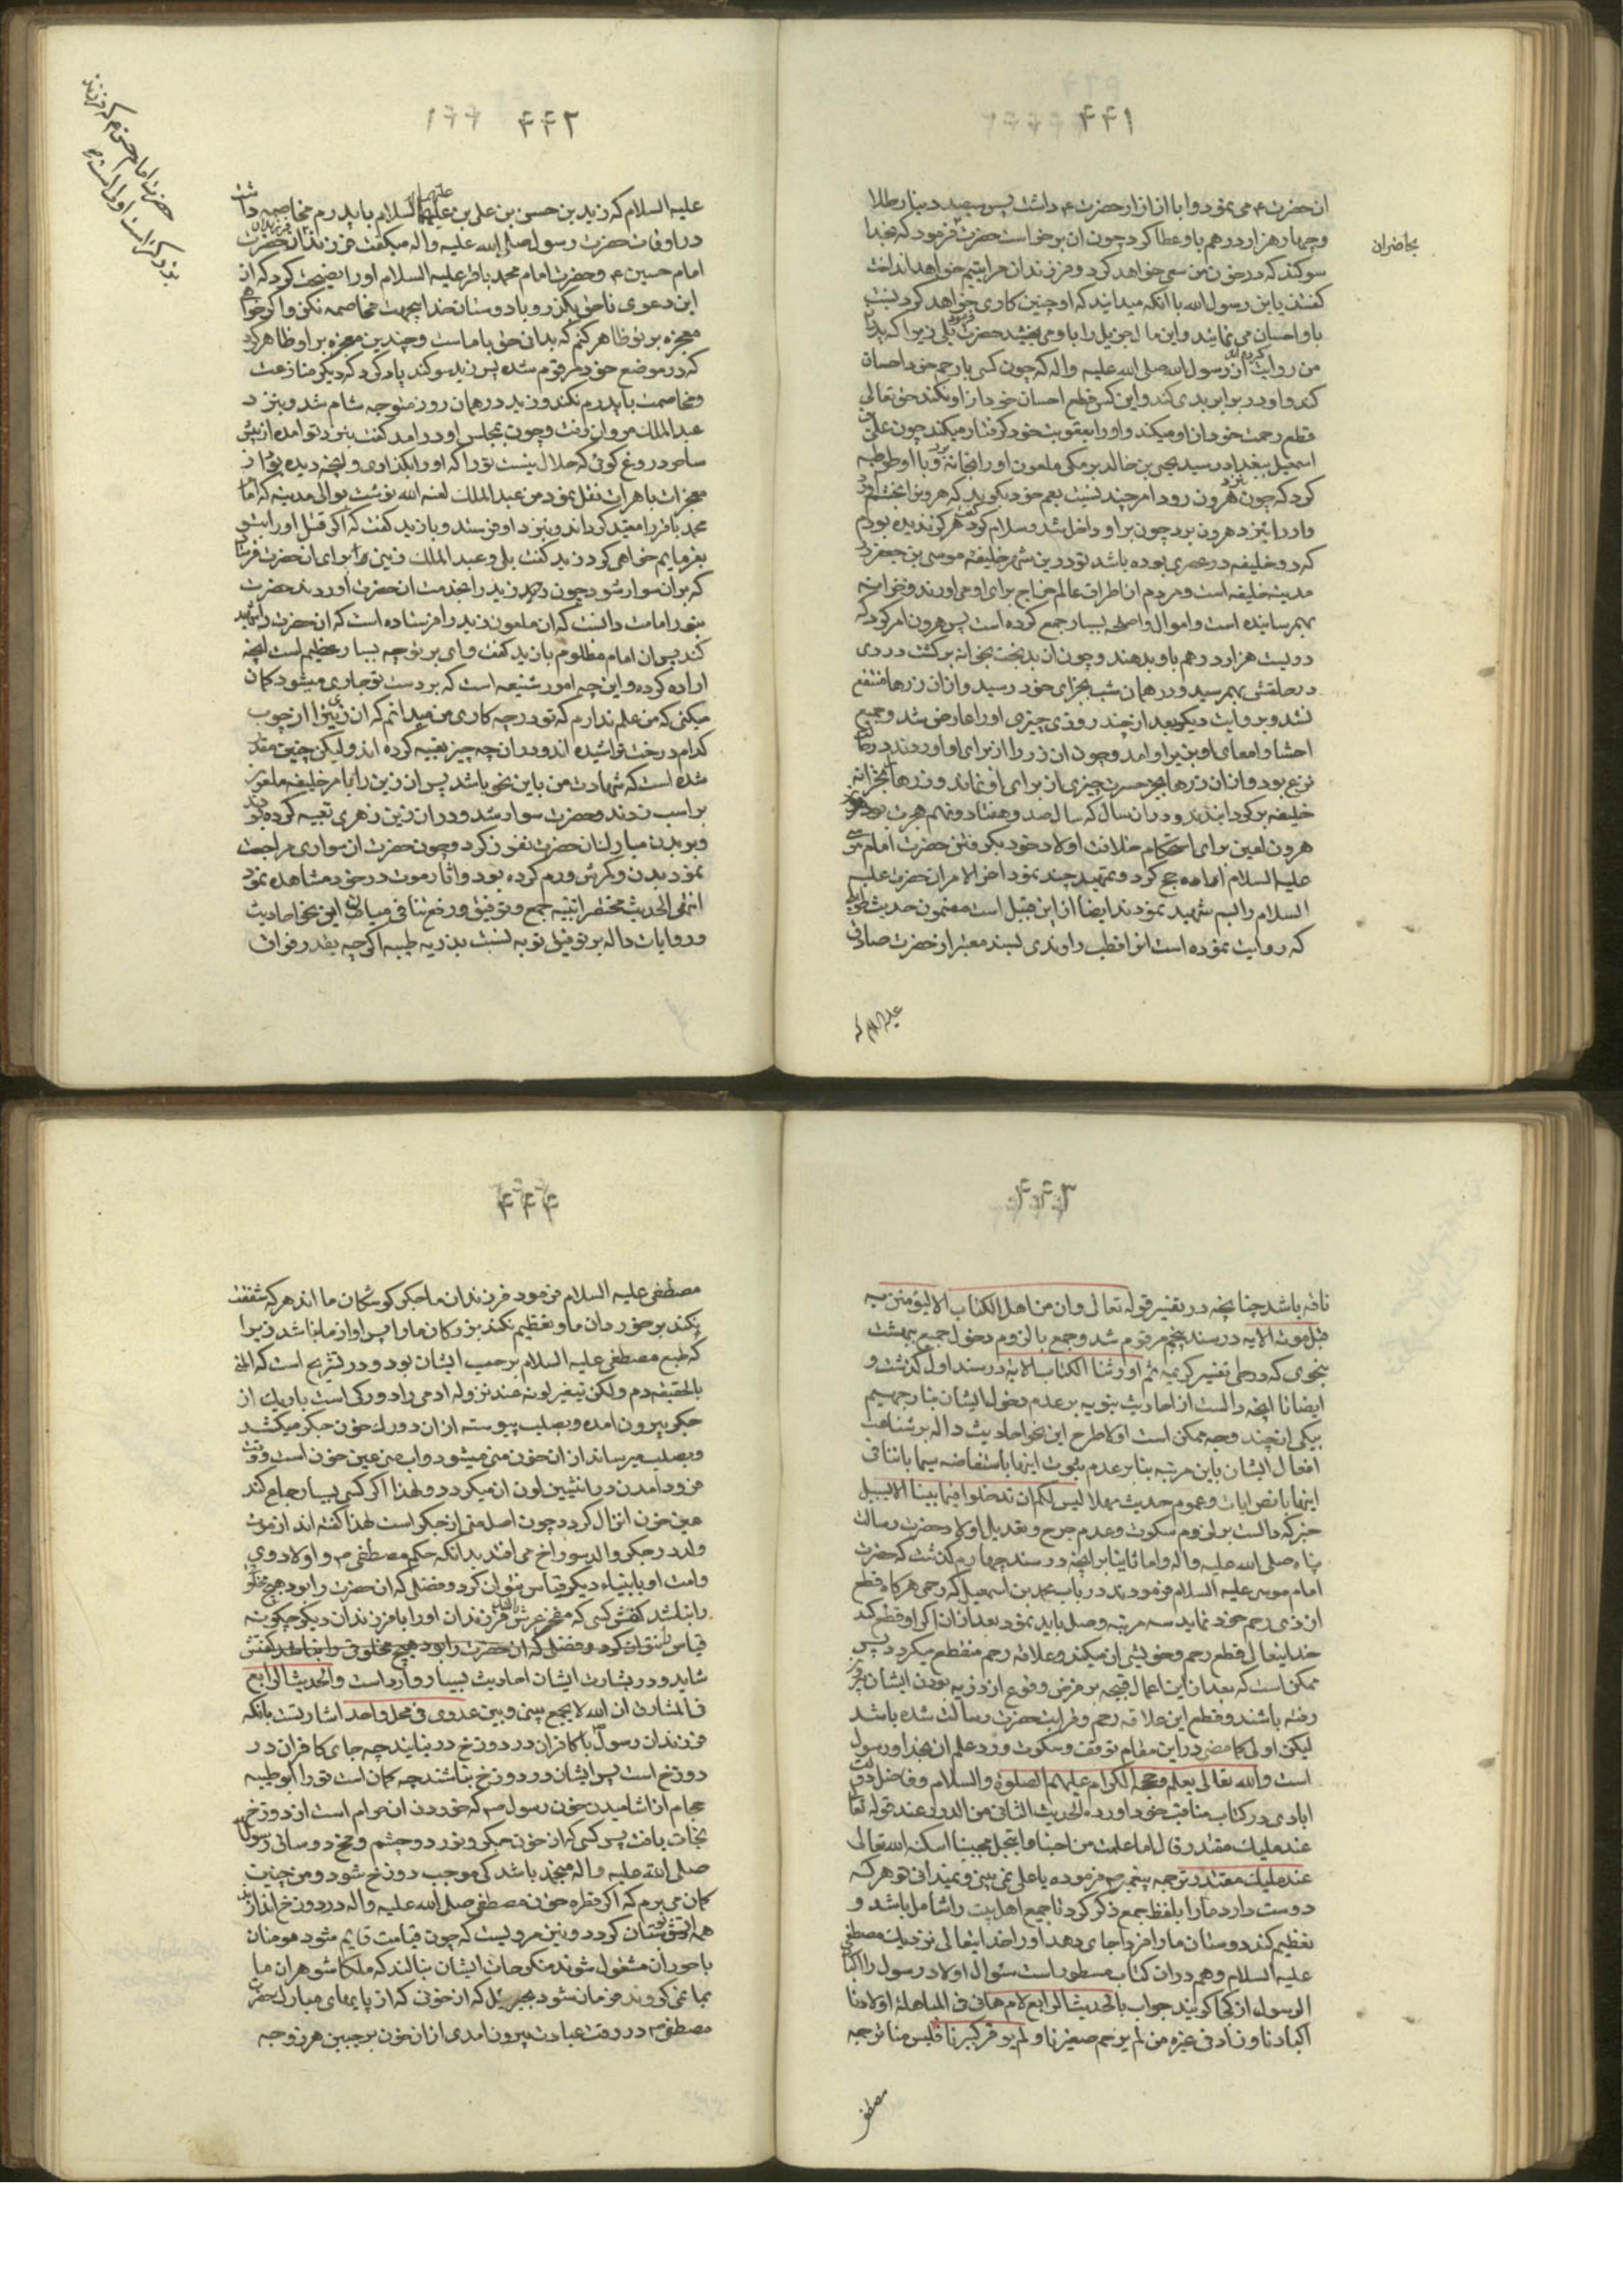 ۴۴۱
ان حضرت ع می نمود و ابا از ازار حضرت ع داشت پس سیصد دینار طلا
و چهار هزار درهم باو عطا کرد چون ان برخواست حضرت فرمود که بخدا
بحاضران
سوکند که در خون من سعی خواهد کرد و فرزندان مرا یتیم خواهد انداخت
کفتند یابن رسول الله با انکه میدانید که او چنین کاری خواهد کرد نسبت
باو احسان می نمائید و این مال جزیل را باو می بخشید حضرت فرمود بلی زیرا که پدران
من روایت کرده اند از رسول الله صلی الله علیه واله که چون کسی با رحم خود احسان
کند و او در برابر بدی کند و این کس قطع احسان خود از او نکند حق تعالی
قطع رحمت خود از او میکند و او را بعقوبت خود کرفتار میکند چون علی بن
اسمعیل ببغداد رسید یحیی بن خالد برمکی ملعون او را بخانه برد و با او توطیه
کرد که چون نزد هرون رود امر چند نسبت بعم خود بکوید که هرون را بخشم اورد
و او را بنزد هرون برد چون بر او داخل شد و سلام کرد گفت هرکز ندیده بودم
که دو خلیفه در عصری بوده باشد تو درین شهر خلیفه موسی بن جعفر در
مدینه خلیفه است و مردم از اطراف عالم خراج برای او می اورند و خزانه
بهم رسانیده است و اموال و اسلحه بسیار جمع کرده است پس هرون امر کرد که
دویست هزار درهم باو بدهند و چون ان بدبخت بخانه برکشت دردی
در حلقش بهم رسید و در همان شب بجزای خود رسید و از ان زرها منتفع
نشد و بروایت دیکر بعد از چند روزی چیزی او را عارض شد و جمیع
احشا و امعای او بزیر او امد و چون ان زر را از برای او اوردند در حالت
نزع بود و از ان زرها بجز حسرت چیزی از برای او نماند و زرها بخزانه
خلیفه برکردانیدند و در ان سال که سال صد و هفتاد و نهم هجرت بود
هرون لعین برای استحکام خلافت اولاد خود بکرفتن حضرت امام موسی
علیه السلام اراده حج کرد و تمهید چند نمود اخر الامر ان حضرت علیه
السلام را بسم شهید نمودند ایضا از این قبیل است مضمون حدیث طویلی
که روایت نموده است انرا قطب راوندی بسند معتبر از حضرت صادق
علیه السلام که
۴۴۲
علیه السلام که زید بن حسن بن علی بن علیهما السلام با پدرم مخاصمه داشت
در اوقات حضرت رسول صلی الله علیه واله میکفت فرزندان حضرت
امام حسین ع و حضرت امام محمد باقر علیه السلام او را نصیحت کرد که از
این دعوی ناحق بکذر و با دوستان خدا بجهت مخاصمه نکن و اکر خواهی
معجزه بر تو ظاهر کنم که بدانی حق با ماست و چندین معجزه بر او ظاهر کرد
که در موضع خود مرقوم شده پس زید سوکند یاد کرد که دیکر منازعت
و مخاصمت با پدرم نکند و زید در همان روز متوجه شام شد و بنزد
عبد الملک مروان رفت و چون بمجلس او در امد کفت بنزد تو امده از پیش
ساحر دروغ کوئی که حلال نیست تو را که او را بکذاری و انچه دیده بود از
معجزات باهرات نقل نمود من عبد الملک لعنه الله نوشت بوالی مدینه که امام
محمد باقر را مقید کرداند و بنزد او فرستد و با زید کفت که اکر قتل او را بتو
بفرمایم خواهی کرد زید کفت بلی و عبد الملک زینی را برای ان حضرت فرستاد
که بر ان سوار شود چون زید را بخدمت ان حضرت اوردند حضرت
بنور امامت دانست که ان ملعون زید را فرستاده است که ان حضرت را شهید
کند پس ان امام مظلوم با زید کفت وای بر تو چه بسیار عظیم است انچه
اراده کرده و این چه امور شنیعه است که بر دست تو جاری میشود کمان
میکنی که من علم ندارم که تو در چه کاری من میدانم که ان زین را از چوب
کدام درخت تراشیده اند و در ان چه چیز تعبیه کرده اند ولیکن چنین مقدر
شده است که شهادت من باین نحو باشد پس ان زین را بامر خلیفه ملعون
بر اسب زدند و حضرت سوار شد و در ان زین زهری تعبیه کرده بودند
و بر بدن مبارک ان حضرت نفوذ کرد و چون حضرت از سواری مراجعت
نمود بدن مبارکش ورم کرده بود و اثار موت در خود مشاهده نمود
انتهی الحدیث مختصرا تنبیه جمع و توفیق و رفع تنافی میان این نحو احادیث
و روایات داله بر توفیق توبه نسبت بذریه طیبه اکرچه بقدر فواق
حضرت امام حسن ع که فرزند
بزرکتر است اولی است
۴۴۳
ناقه باشد چنانچه در تفسیر قوله تعالی وان من اهل الکتاب الا لیؤمنن به
قبل موته الایه در سند پنجم مرقوم شد و جمع با لزوم دخول جمیع بهشت
بنحوی که در طی تفسیر کریمه ثم اورثنا الکتاب الایه در سند اول کذشت و
ایضا با انچه دالست از احادیث نبویه بر عدم دخول ایشان بنار جهنم
بیکی از چند وجه ممکن است اولا طرح این نحو احادیث داله بر شناعت
افعال ایشان باین مرتبه بنا بر عدم ثبوت اینها باستفاضه سیما با تنافی
اینها با نص ایات و عموم حدیث مهلا لیس لکم ان تدخلوا فیما بیننا الا بسبیل
خیر که دالست بر لزوم سکوت و عدم جرح و تعدیل اولاد حضرت رسالت
پناه صلی الله علیه واله و اما ثانیا بنا بر انچه در سند چهارم کذشت که حضرت
امام موسی علیه السلام فرمودند در باب محمد بن اسمعیل که رحمی هرکاه قطع
از ذی رحم خود نماید سه مرتبه وصل باید نمود بعد از ان اکر او قطع کند
خدایتعالی قطع رحم و خویشی ان میکند و علاقه رحم منقطع میکردد پس
ممکن است که بعد از این اعمال قبیحه بر فرض وقوع از ذریه بودن ایشان بدر
رفته باشند و قطع این علاقه رحم و قرابت حضرت رسالت شده باشد
لیکن اولی کما مضی در این مقام توقف و سکوت و رد علم ان بخدا و رسول
است والله تعالی یعلم و حججه الکرام علیهم الصلوة والسلام و فاضل دولت
ابادی در کتاب مناقب خود اورده الحدیث الثانی من الدرر عند قوله تعالی
عند ملیک مقتدر قال اما علمت من احبنا وانتحل محبتنا اسکنه الله تعالی
عند ملیک مقتدر ترجمه پیغمبر ص فرموده یا علی نمی بینی و نمیدانی تو هر که
دوست دارد ما را بلفظ جمع ذکر کرد تا جمیع اهل بیت را شامل باشد و
تعظیم کند دوستان ما را فردا جای دهد او را خدایتعالی نزدیک مصطفی
علیه السلام و هم در ان کتاب مسطور است سئوال اولاد رسول را اکباد
الرسول از کجا کویند جواب بالحدیث الرابع لام هانی فی المباهلة اولادنا
اکبادنا وزاد فی غیره من لم یرحم صغیرنا ولم یوقر کبیرنا فلیس منا ترجمه
مصطفی
۴۴۴
مصطفی علیه السلام فرمود فرزندان ما جکر کوشکان ما اند هر که شفقت
نکند بر خوردان ما و تعظیم نکند بزرکان ما را پس او از ما نباشد زیرا
که طبع مصطفی علیه السلام بر حب ایشان بود و در تشریح است که المنی
بالحقیقه دم ولکن تیغیر لونه عند نزوله ادمی را دو رکی است باریک از
جکر بیرون امده و بصلب پیوسته از ان دو رک خون جکر میکشد
و بصلب میرساند از ان خون منی میشود و اب منی عین خون است وقت
فرود آمدن در انثیین لون ان میکردد و لهذا اکر کسی بسیار جماع کند
عین خون انزال کردد چون اصل منی از جکر است لهذا کفته اند از موت
ولد در جکر والد سوراخ می افتد بدانکه حکم مصطفی ص و اولاد وی
و امت او با بنیاء دیکر قیاس نتوان کرد و فضلی که ان حضرت را بود هیچ مخلوق
را نباشد کفش کسی که مغز عرش باشد فرزندان او را با فرزندان دیکر چکونه
قیاس نتوان کرد و فضلی که ان حضرت را بود هیچ مخلوق را نباشد کفش
شاید و در بشارت ایشان احادیث بسیار وارد است والحدیث الرابع
فی المشارق ان الله لا یجمع بینی وبین عدوی فی محل واحد اشارتست بانکه
فرزندان رسول ص با کافران در دوزخ در نیایند چه جای کافران در
دوزخ است پس ایشان در دوزخ نباشند چه کمان است تو را ابو طیبه
حجام از اشامیدن خون رسول ص که خوردن ان حرام است از دوزخ
نجات یافت پس کسی که از خون جکر و نور دو چشم و مخ دو ساق رسول
صلی الله علیه واله منجمد باشد کی موجب دوزخ شود و من چنین
کمان می برم که اکر قطره خون مصطفی صلی الله علیه واله در دوزخ اندازند
همه اتش بوستان کردد و نیز مرویست که چون قیامت قایم شود مومنان
با حوران مشغول شوند منکوحات ایشان بنالند که ملکا شوهران ما
بما نمی کروند فرمان شود بجبرئیل که از خونی که از پایهای مبارک حضرت
مصطفی ص در وقت عبادت بیرون امدی از ان خون بر جبین هر زوجه